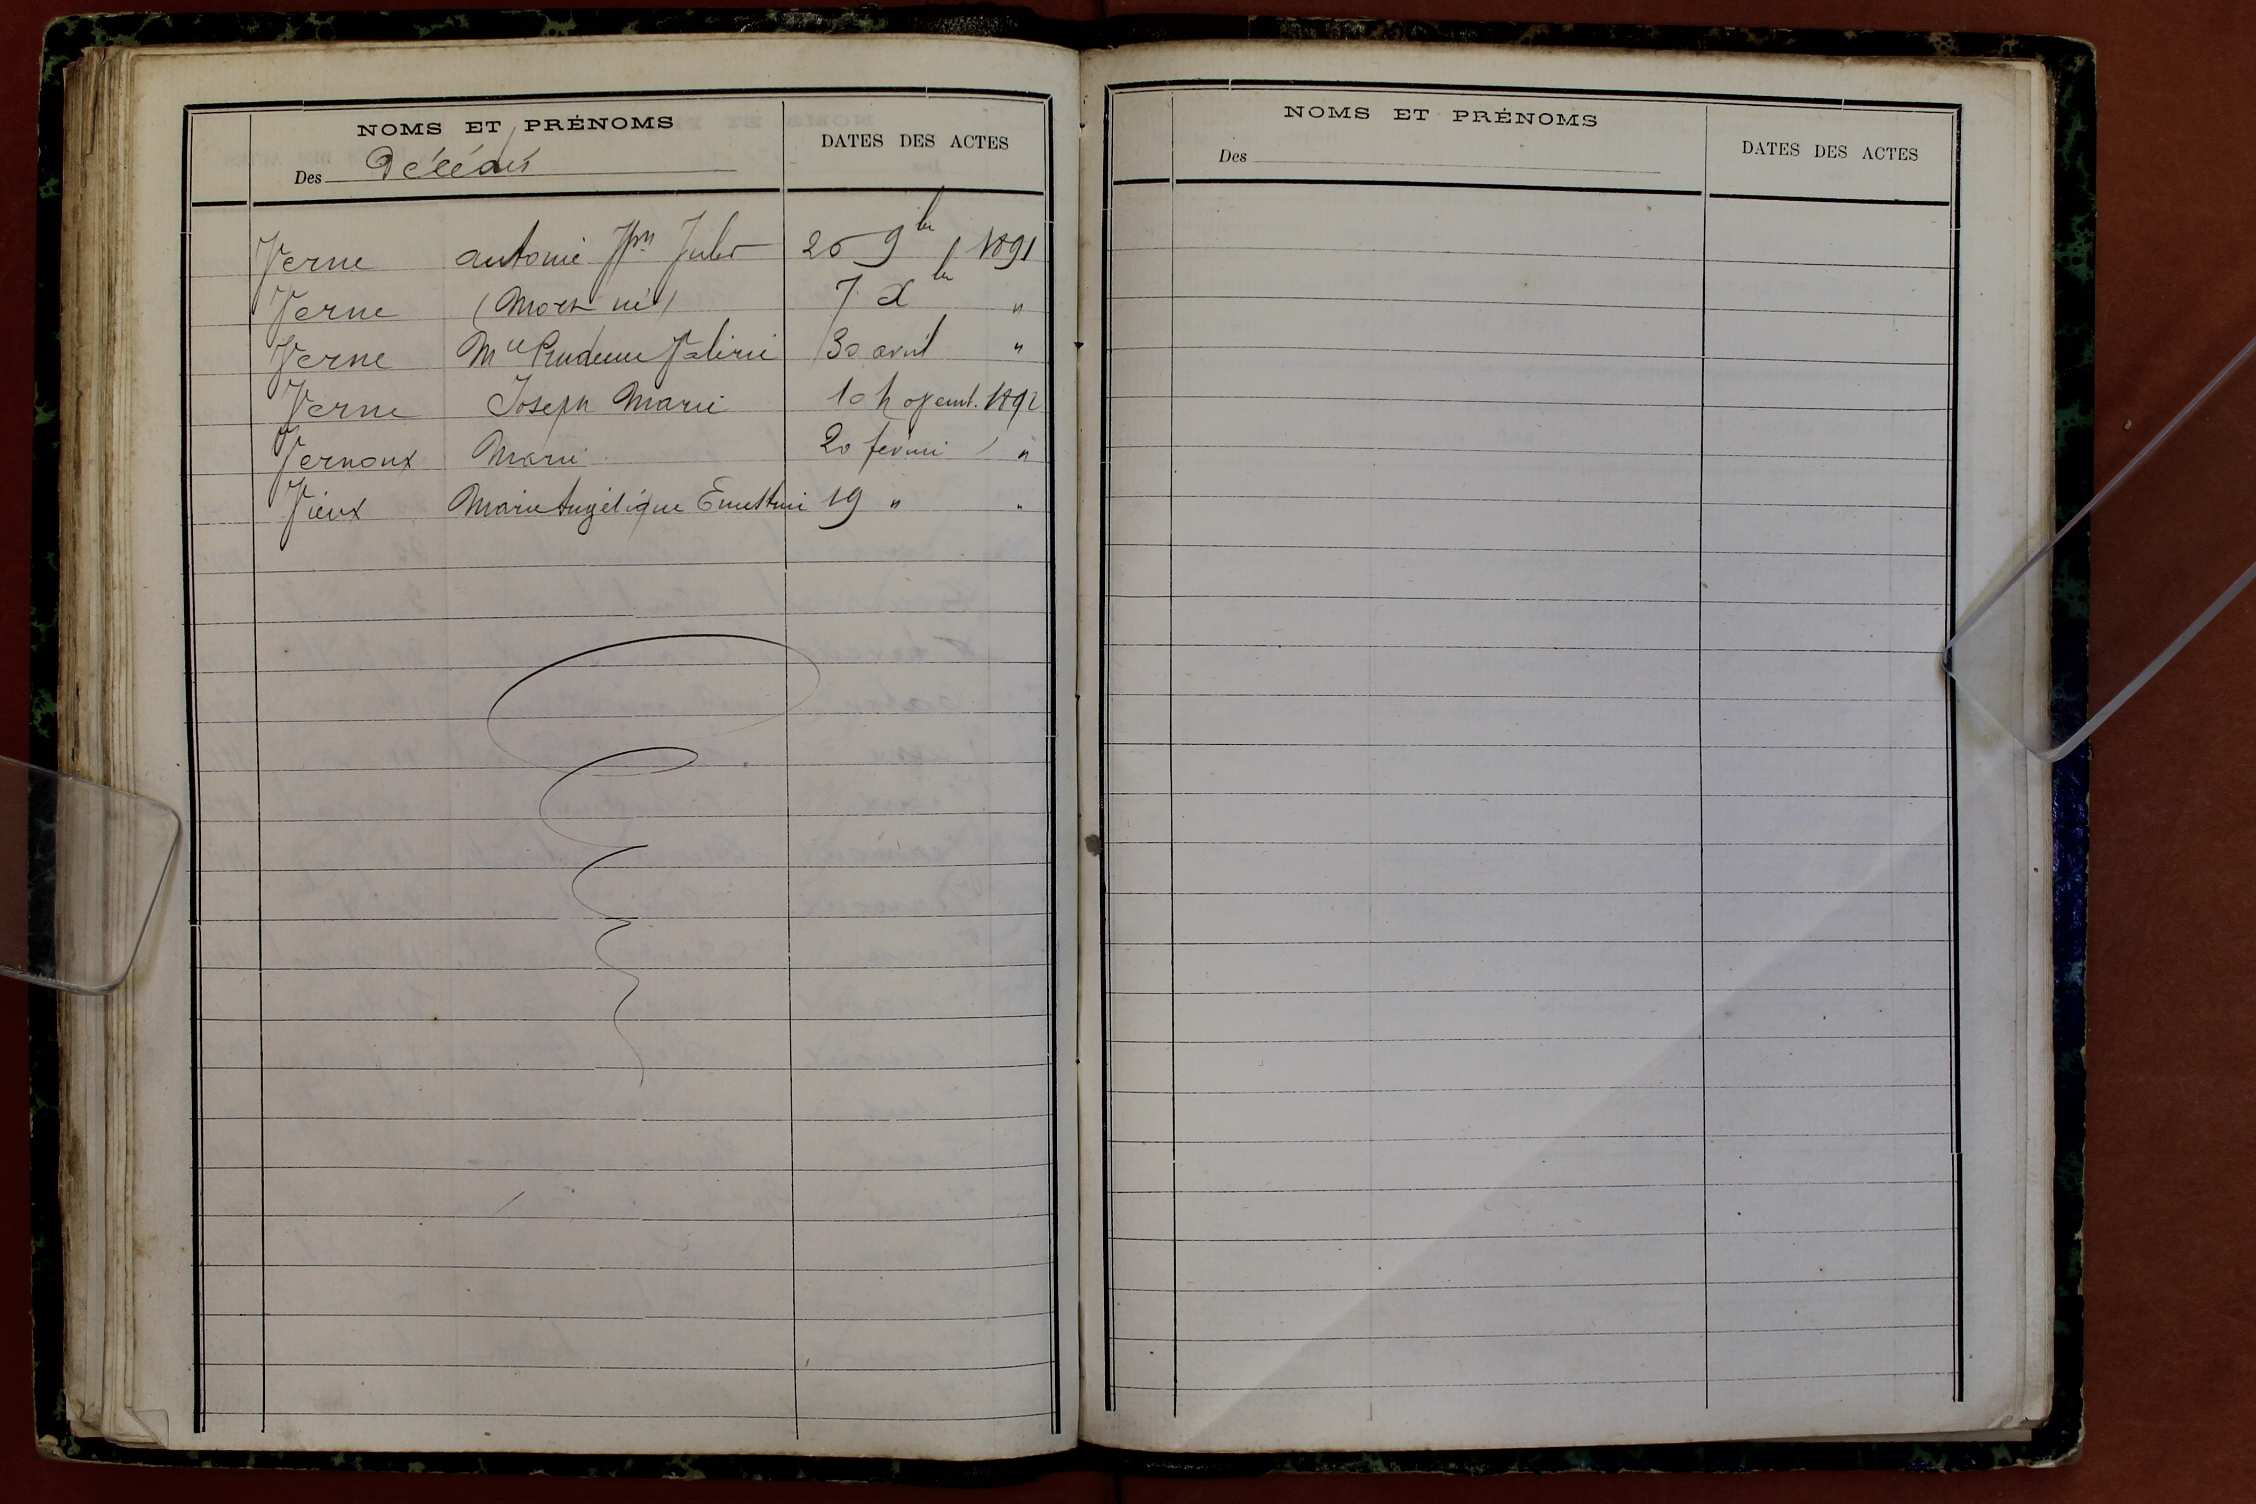 NOMS ET PRÉNOMS
DATES DES ACTES
Des Décédés
Verne Antoine Jph Jules 20 9bre 1891
Verne (Mort né) 7 Xbre "
Verne Mie Prudence Valérie 30 avril "
Verne Joseph Marie 10 1892
Vernoux Marie 20 février "
Vieux Marie Angélique Ernestine 19 " "
NOMS ET PRÉNOMS
DATES DES ACTES
Des